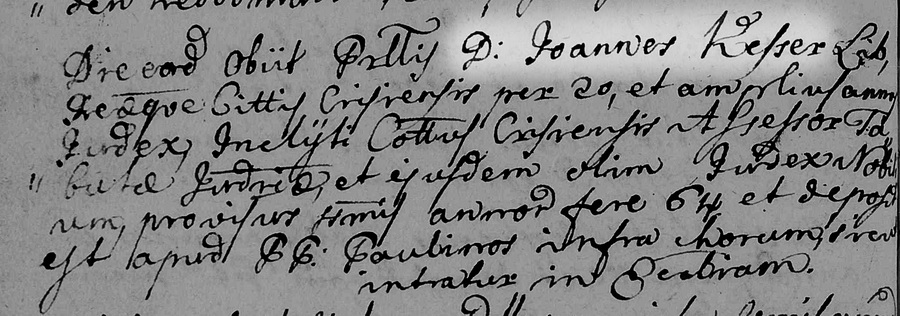 Die eod obiit Prllis D: Joannes Kesser Lib,
Reæque Cittis Crisiensis per 20, et amplius ann
Judex, Inclyti Cottus Crisiensis Assessor Ta
" bulæ Judriæ, et ejusdem olim Judex Nobi
um, provisus ssmis annor fere 64 et deposi
est apud PP: Paulinos infra chorum,
intratur in Ecclam.